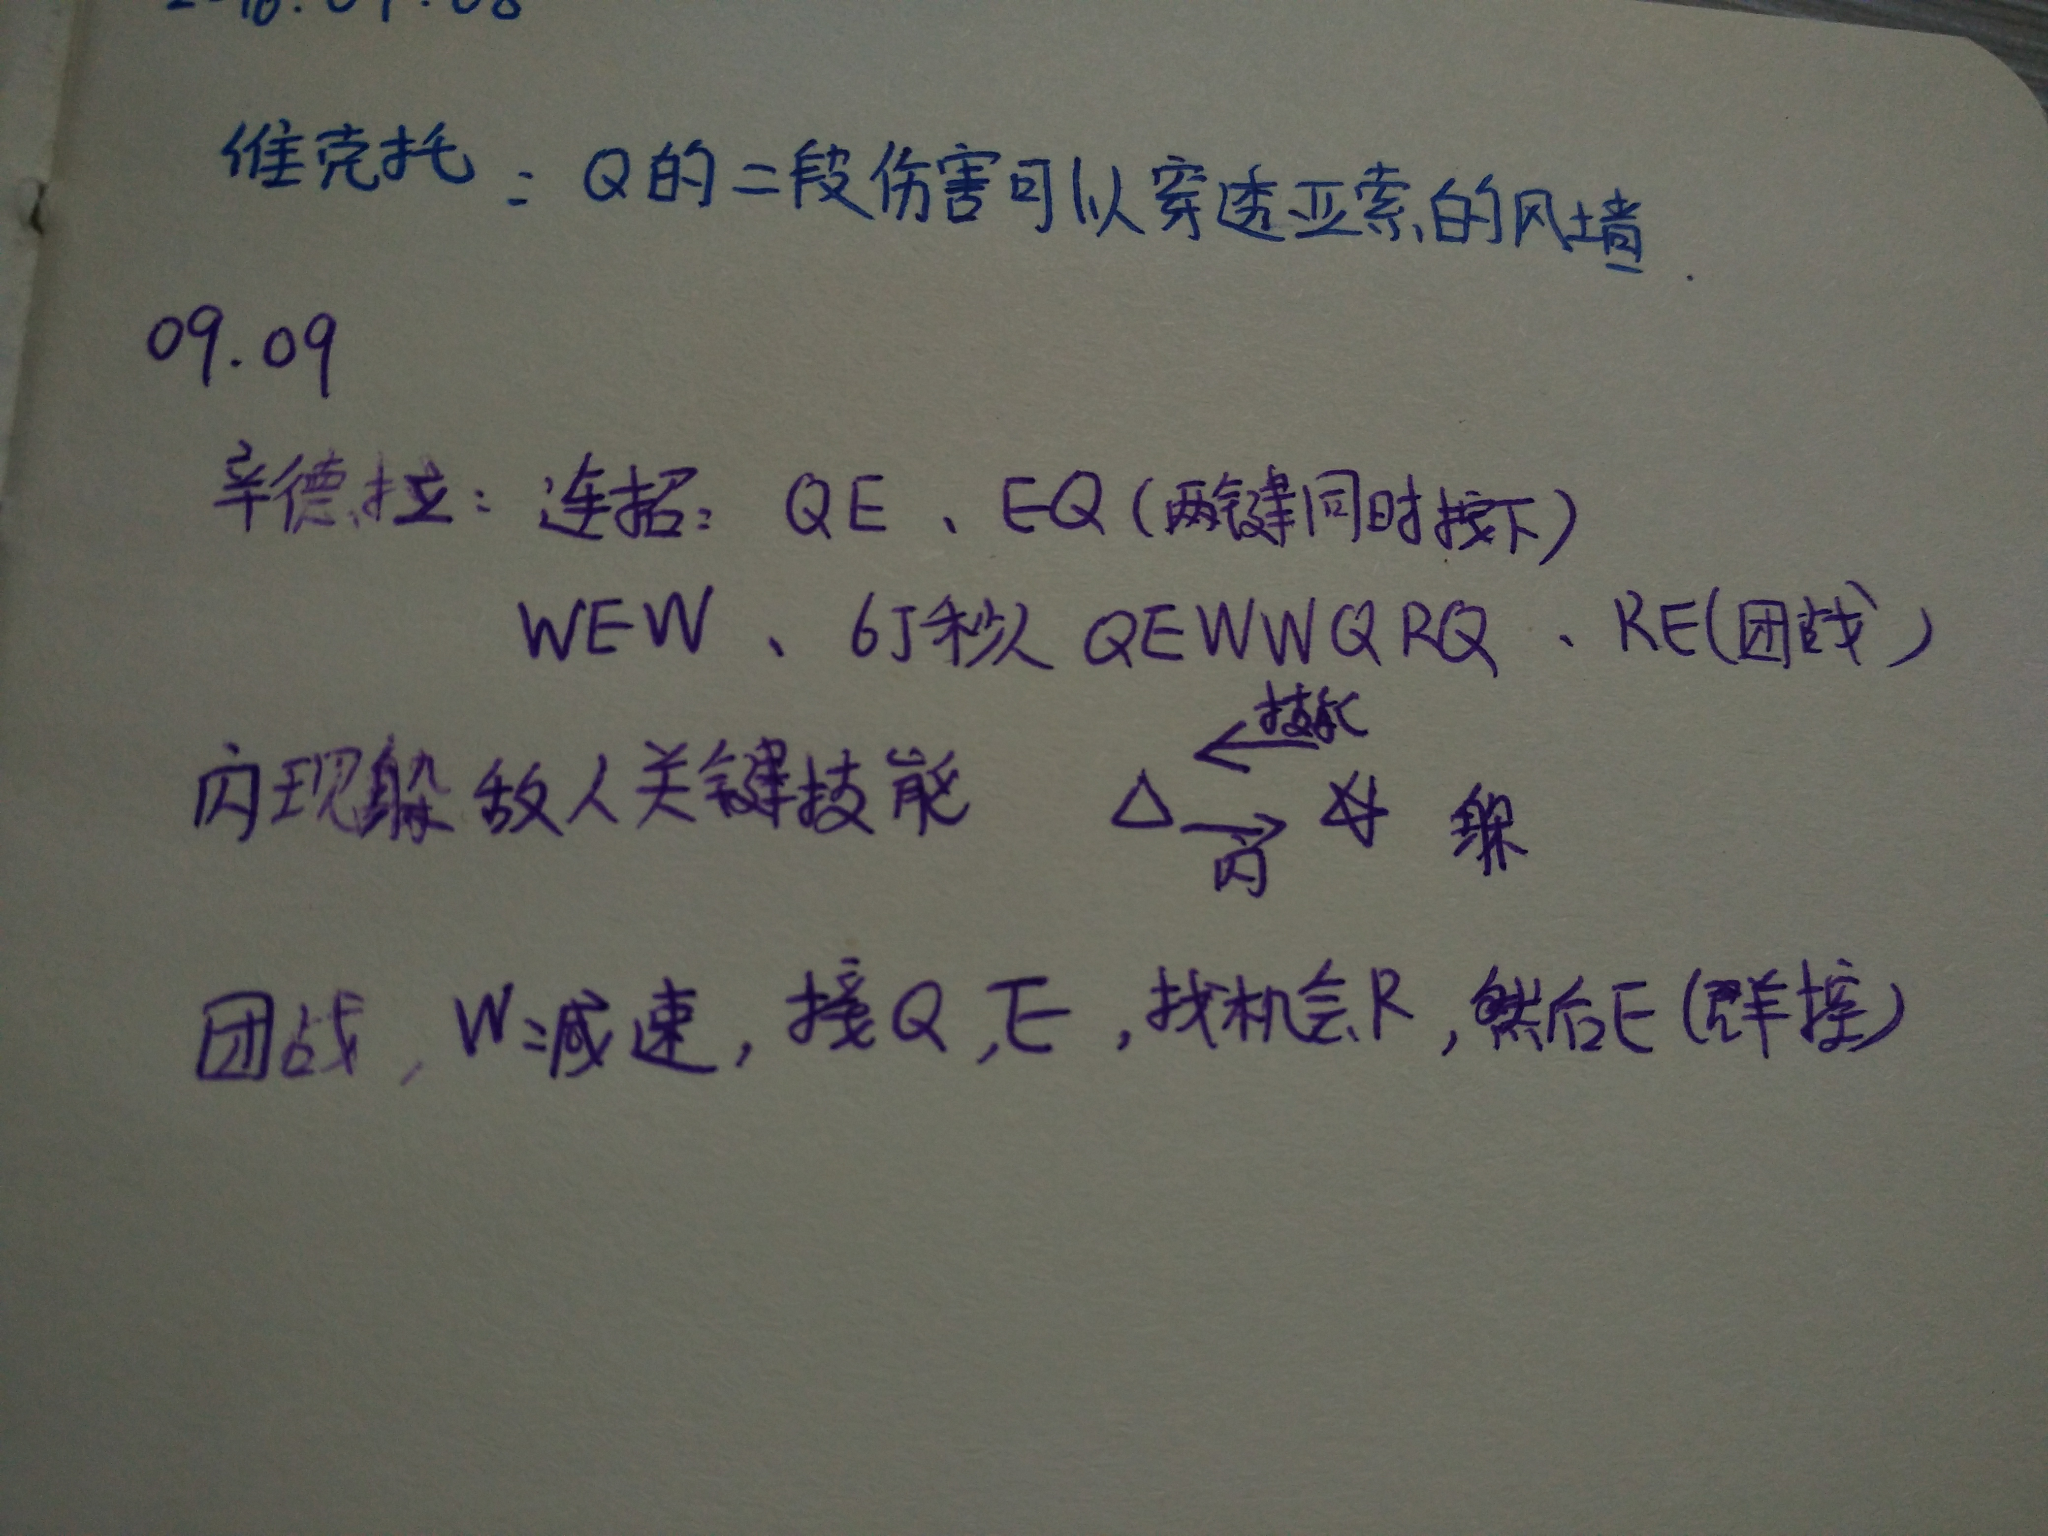 维克托：Q的二段伤害可以穿透亚索的风墙.
09.09
辛德拉：连招：QE、EQ(两键同时按下)
WEW、6J秒人QEWWQRQ、RE(团战)
技能
闪现躲敌人关键技能 躲
闪
团战，W减速，接Q，E，找机会R，然后E(群控)